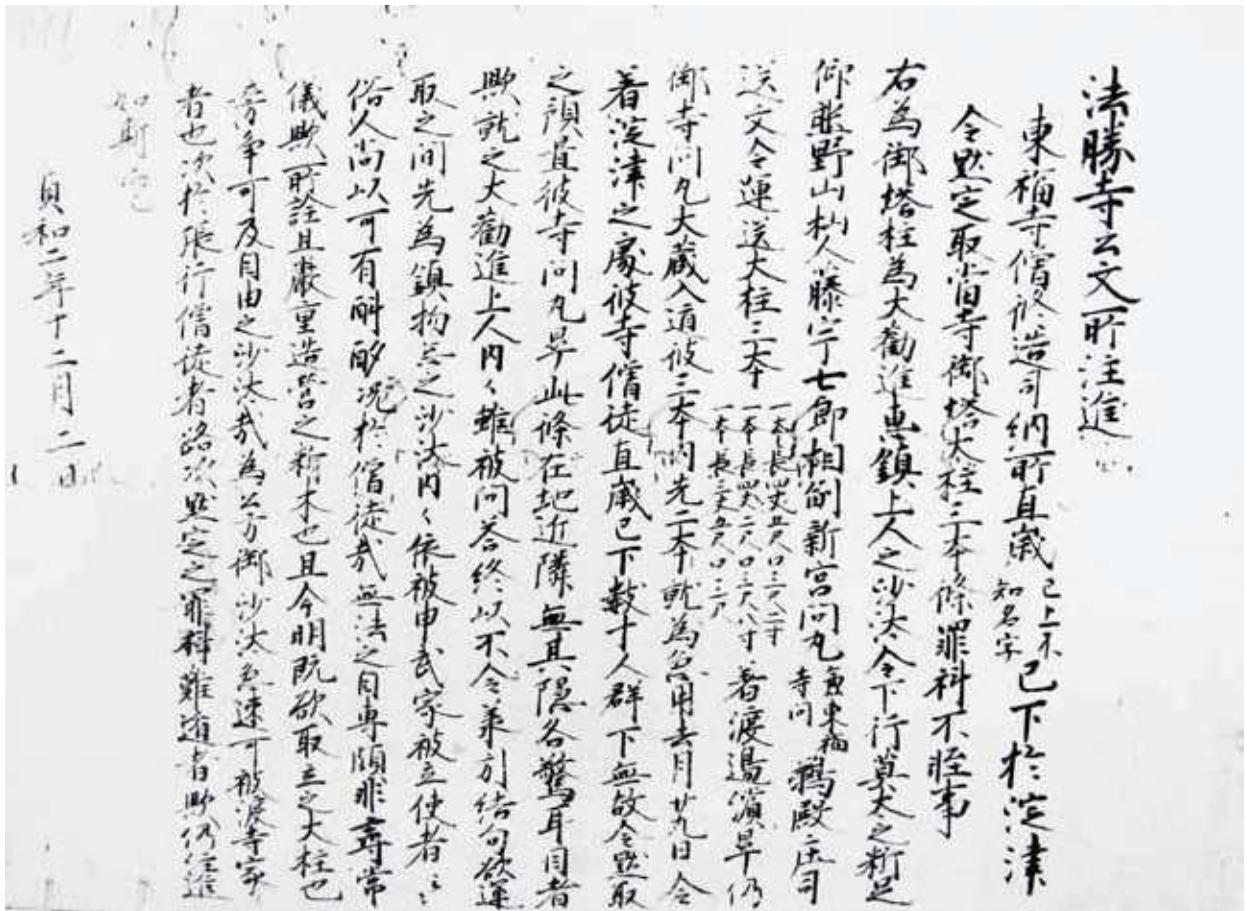 法勝寺公文所注進
東福寺僧修造司納所直歳已上不知名字已下於淀津
令點定取當寺御塔大柱三本條罪科不軽事
右為御塔柱為大勧進恵鎮上人之沙汰令下行莫太之析足
仰熊野山杣人藤宰七郎相副新宮問丸兼東福寺問鵜殿庄司
送文令運送大柱三本一本長四丈五尺口三尺二寸一本長四丈二尺口三尺八寸一本長三丈五尺口三尺着渡邊濱早仍
御寺問丸大蔵入道彼三本内先二本就為急用去月廿九日令
着淀津之處彼寺僧徒直歳已下数十人群下無故令點取
之預置彼寺問丸早此條在地近隣無其隠各驚耳目者
歟就之大勧進上人内々雖被問答終以不令承引結句欲運
取之間先為鎮物忩之沙汰内々依被申武家被立使者云々
俗人尚以可有斟酌况於僧徒哉無法之自専頗非尋常
儀歟所詮且嚴重造営之析木也且今明既欲取立之大柱也
旁争可及自由之沙汰哉為公方御沙汰急速可被渡寺家
者也次於張行僧徒者路次點定之罪科難遁者歟仍注進
如斯
貞和二年十二月二日